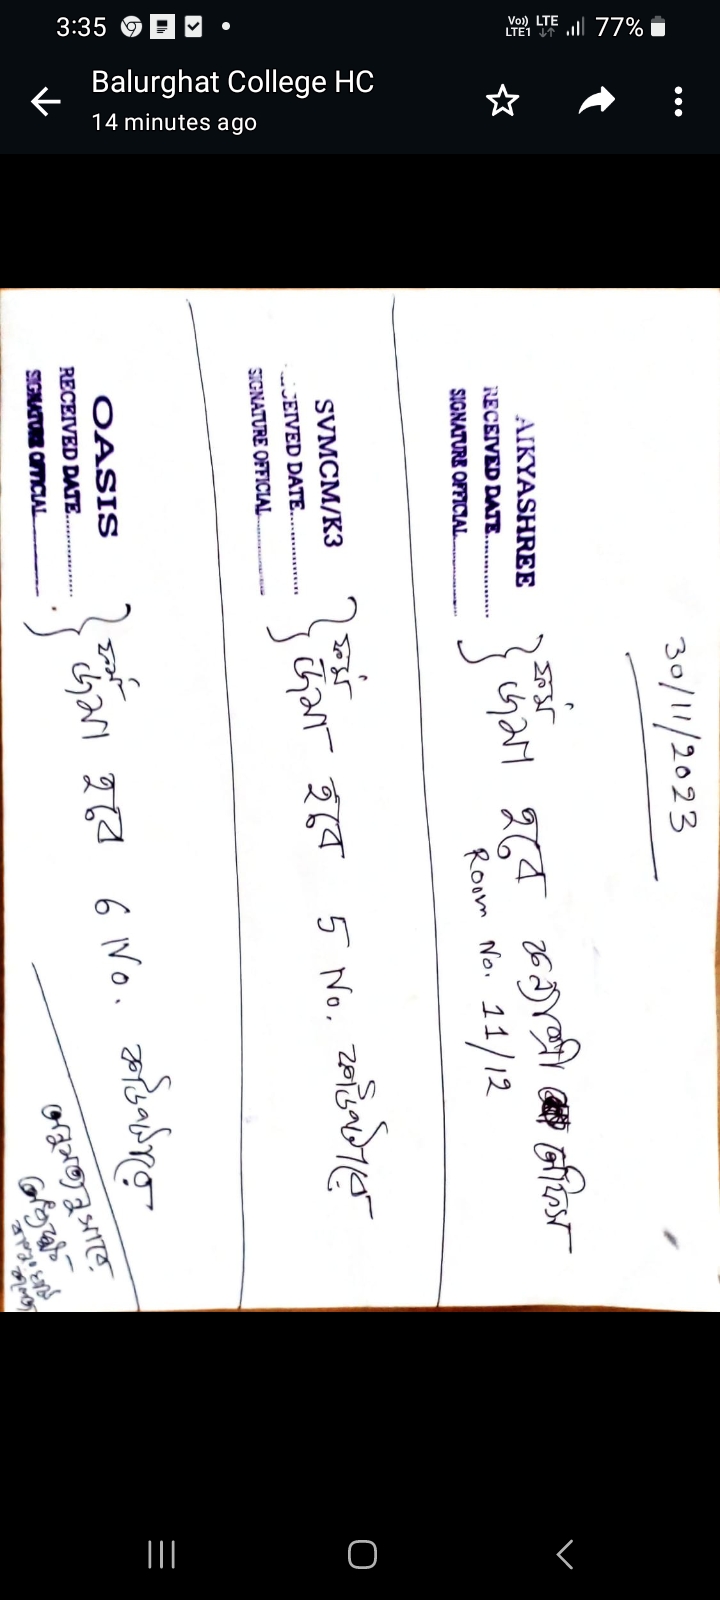 3:35
Vo)) LTE
LTE1
77%
Balurghat College HC
14 minutes ago
30/11/2023
AIKYASHREE
RECEIVED DATE
SIGNATURE OFFICIAL
ফর্ম
জমা হবে
Room No. 11/12
SVMCM/K3
CEIVED DATE
SIGNATURE OFFICIAL
ফর্ম
জমা হবে 5 No. কাউন্টারে
OASIS
RECEIVED DATE
SIGNATURE OFFICIAL
ফর্ম
জমা হবে 6 No. কাউন্টারে